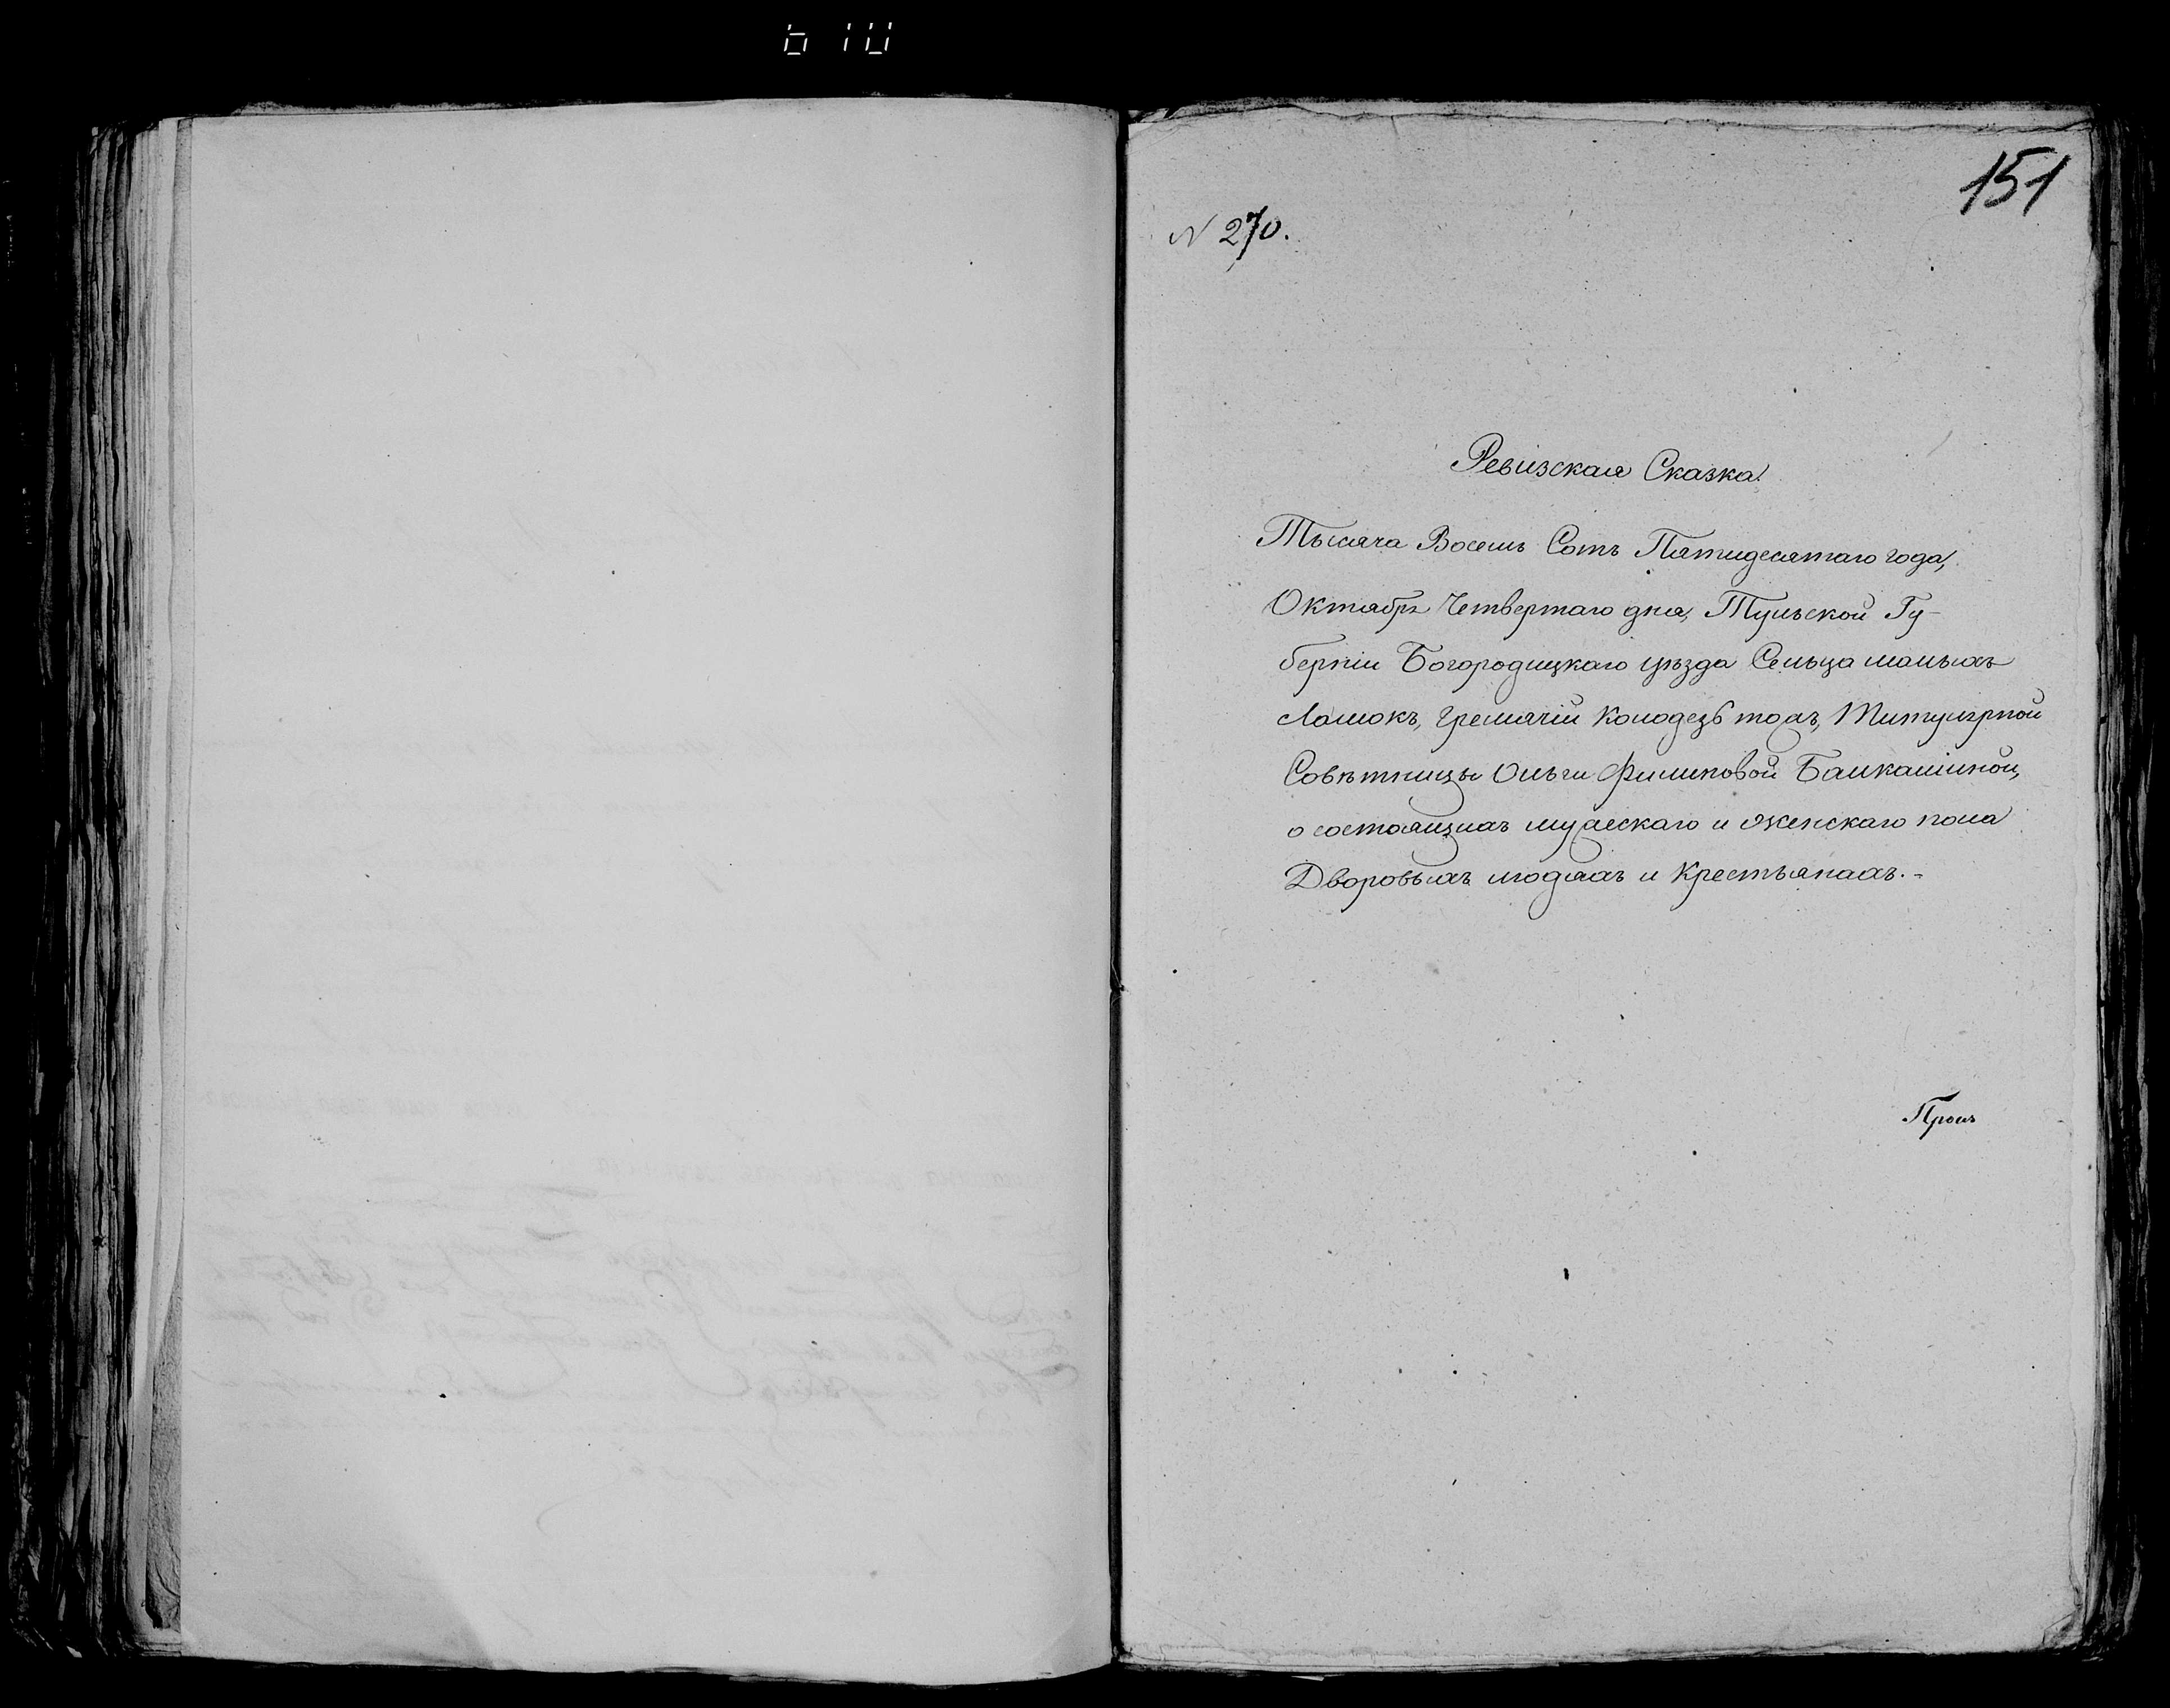 151
N 270.
Ревизская Сказка
Тысяча Восемь Сотъ Пятидесятаго года,
Октября Четвертаго дня, Тульской Гу-
берніи Богородицкаго уѣзда Сельца малыхъ
Ламокъ, Гремячій Колодезь тожъ, Титулярной
Совѣтницы Ольги Филиповой Балкашиной,
о состоящихъ мужескаго и женскаго пола
Дворовыхъ людяхъ и Крестьянахъ.-